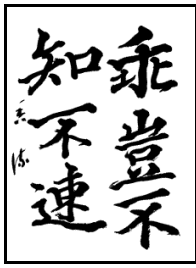 乖豈不
知一不連